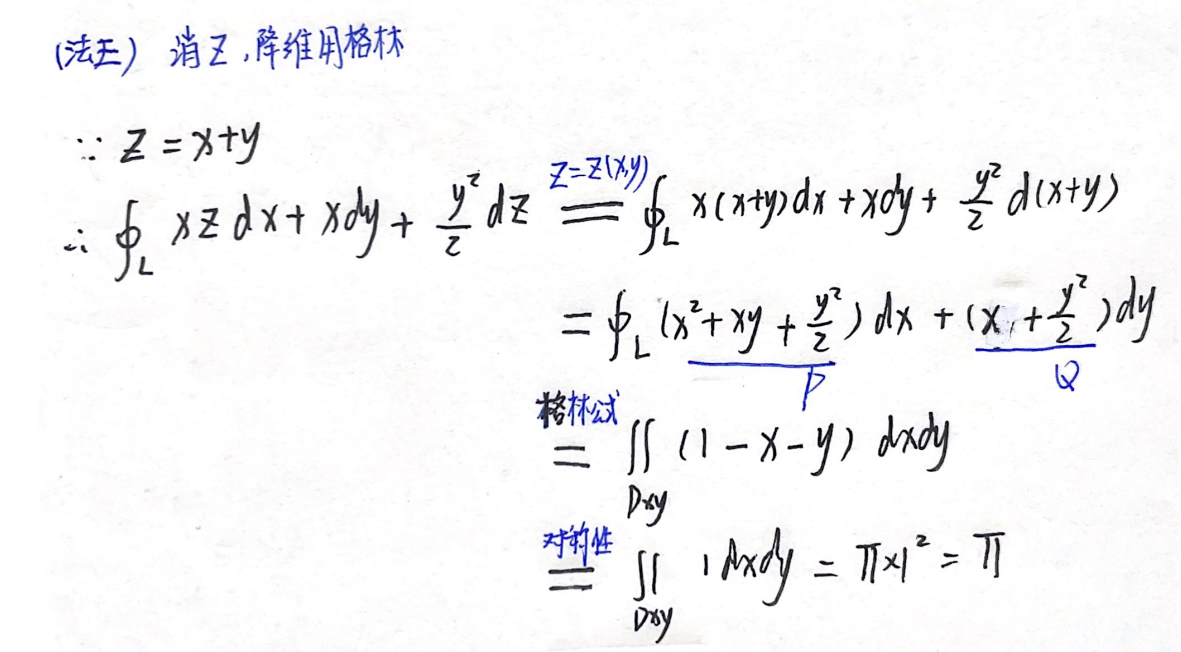 (法三) 消Z,降维用格林
∵ Z = x+y
∴ ∮_L xz dx + x dy + y²/2 dz Z=Z(x,y) = ∮_L x(x+y)dx + xdy + y²/2 d(x+y)
= ∮_L (x² + xy + y²/2) dx + (x + y²/2) dy
P Q
格林公式 = ∬_Dxy (1-x-y) dxdy
对称性 = ∬_Dxy 1 dxdy = π×1² = π